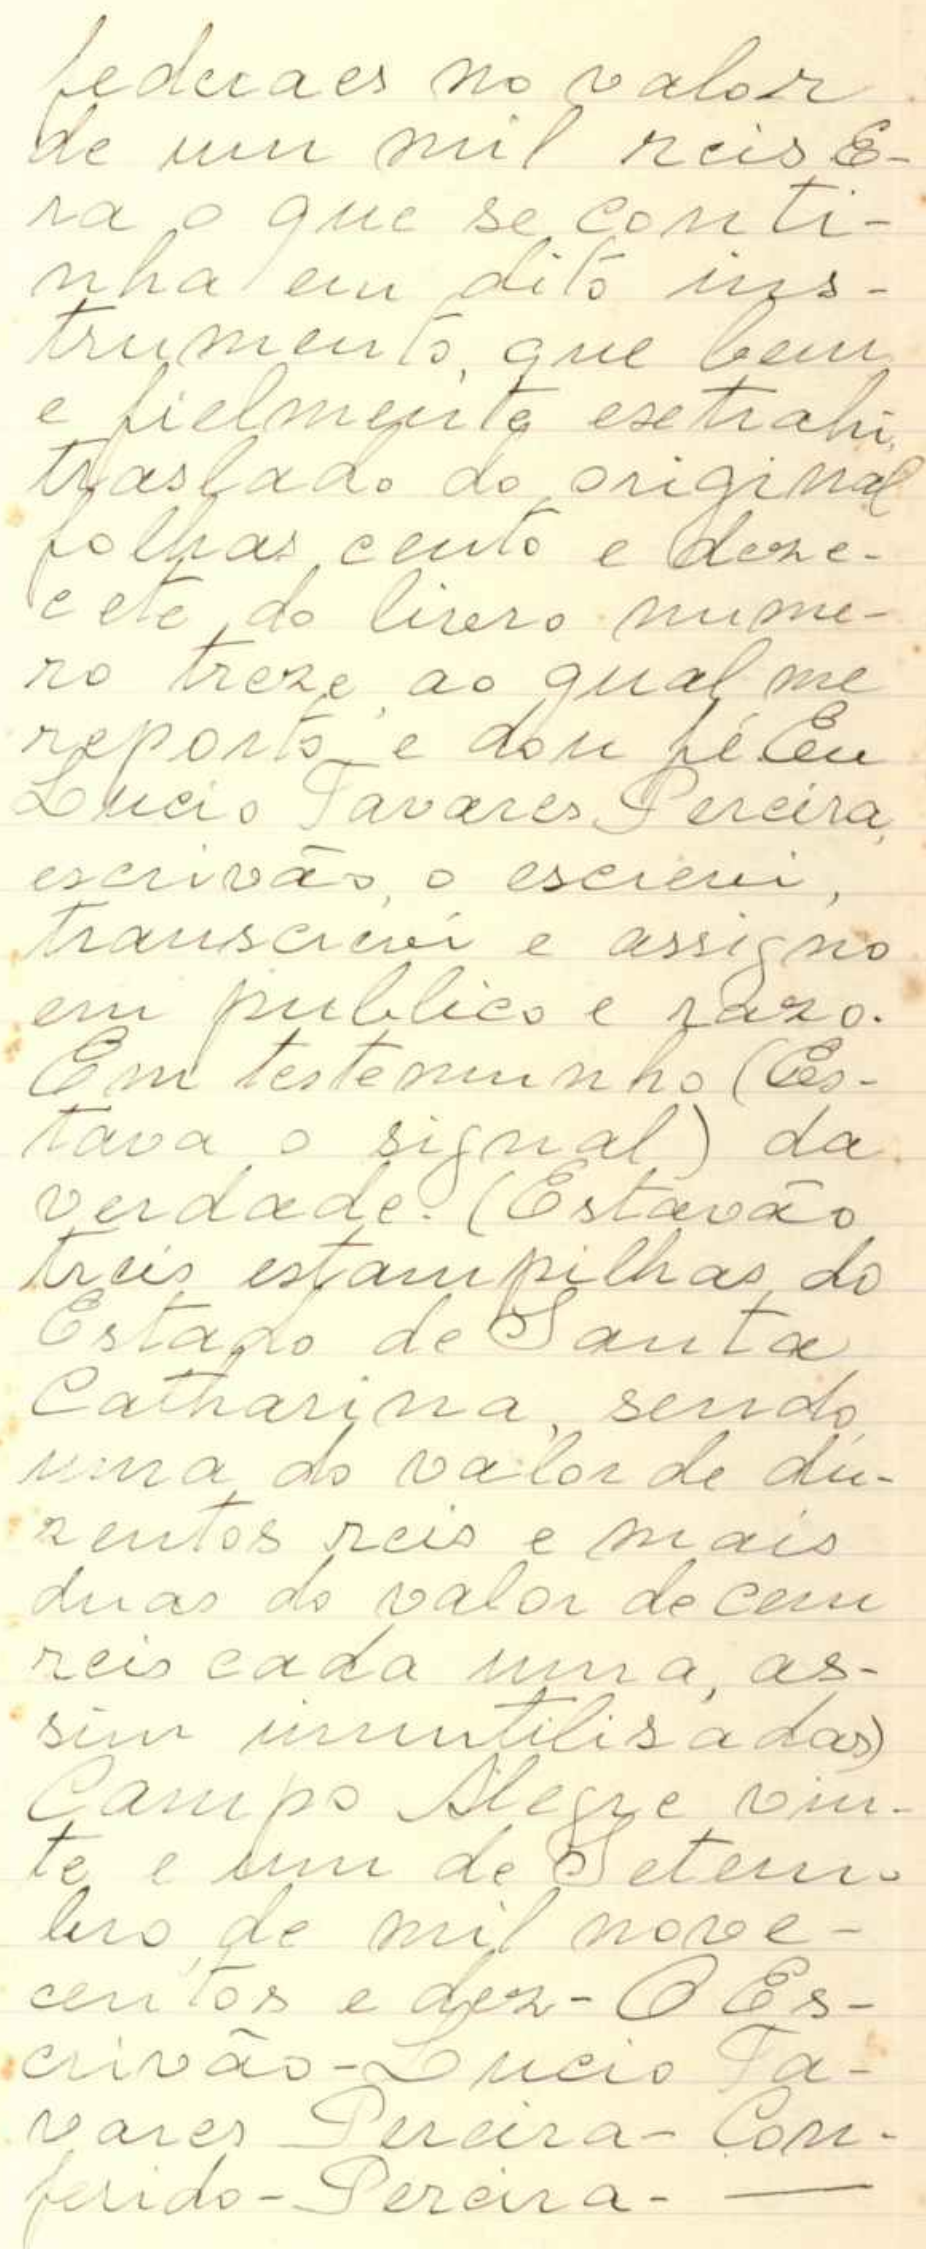 federaes no valor
de um mil reis E-
ra o que se conti-
nha em dito ins-
trumento, que bem
e fielmente extrahi,
traslado do original
folhas cento e deze-
cete do livro nume-
ro treze, ao qual me
reporto e dou fé Eu
Lucio Tavares Pereira,
escrivão, o escrevi,
transcrevi e assigno
em publico e razo.
Em testemunho (Es-
tava o signal) da
verdade. (Estavão
treis estampilhas do
Estado de Santa
Catharina, sendo
uma do valor de du-
zentos reis e mais
duas do valor de cem
reis cada uma, as-
sim inutilisadas)
Campo Alegre vin-
te e um de Setem-
bro de mil nove-
centos e dez - O Es-
crivão - Lucio Ta-
vares Pereira - Con-
ferido - Pereira - —